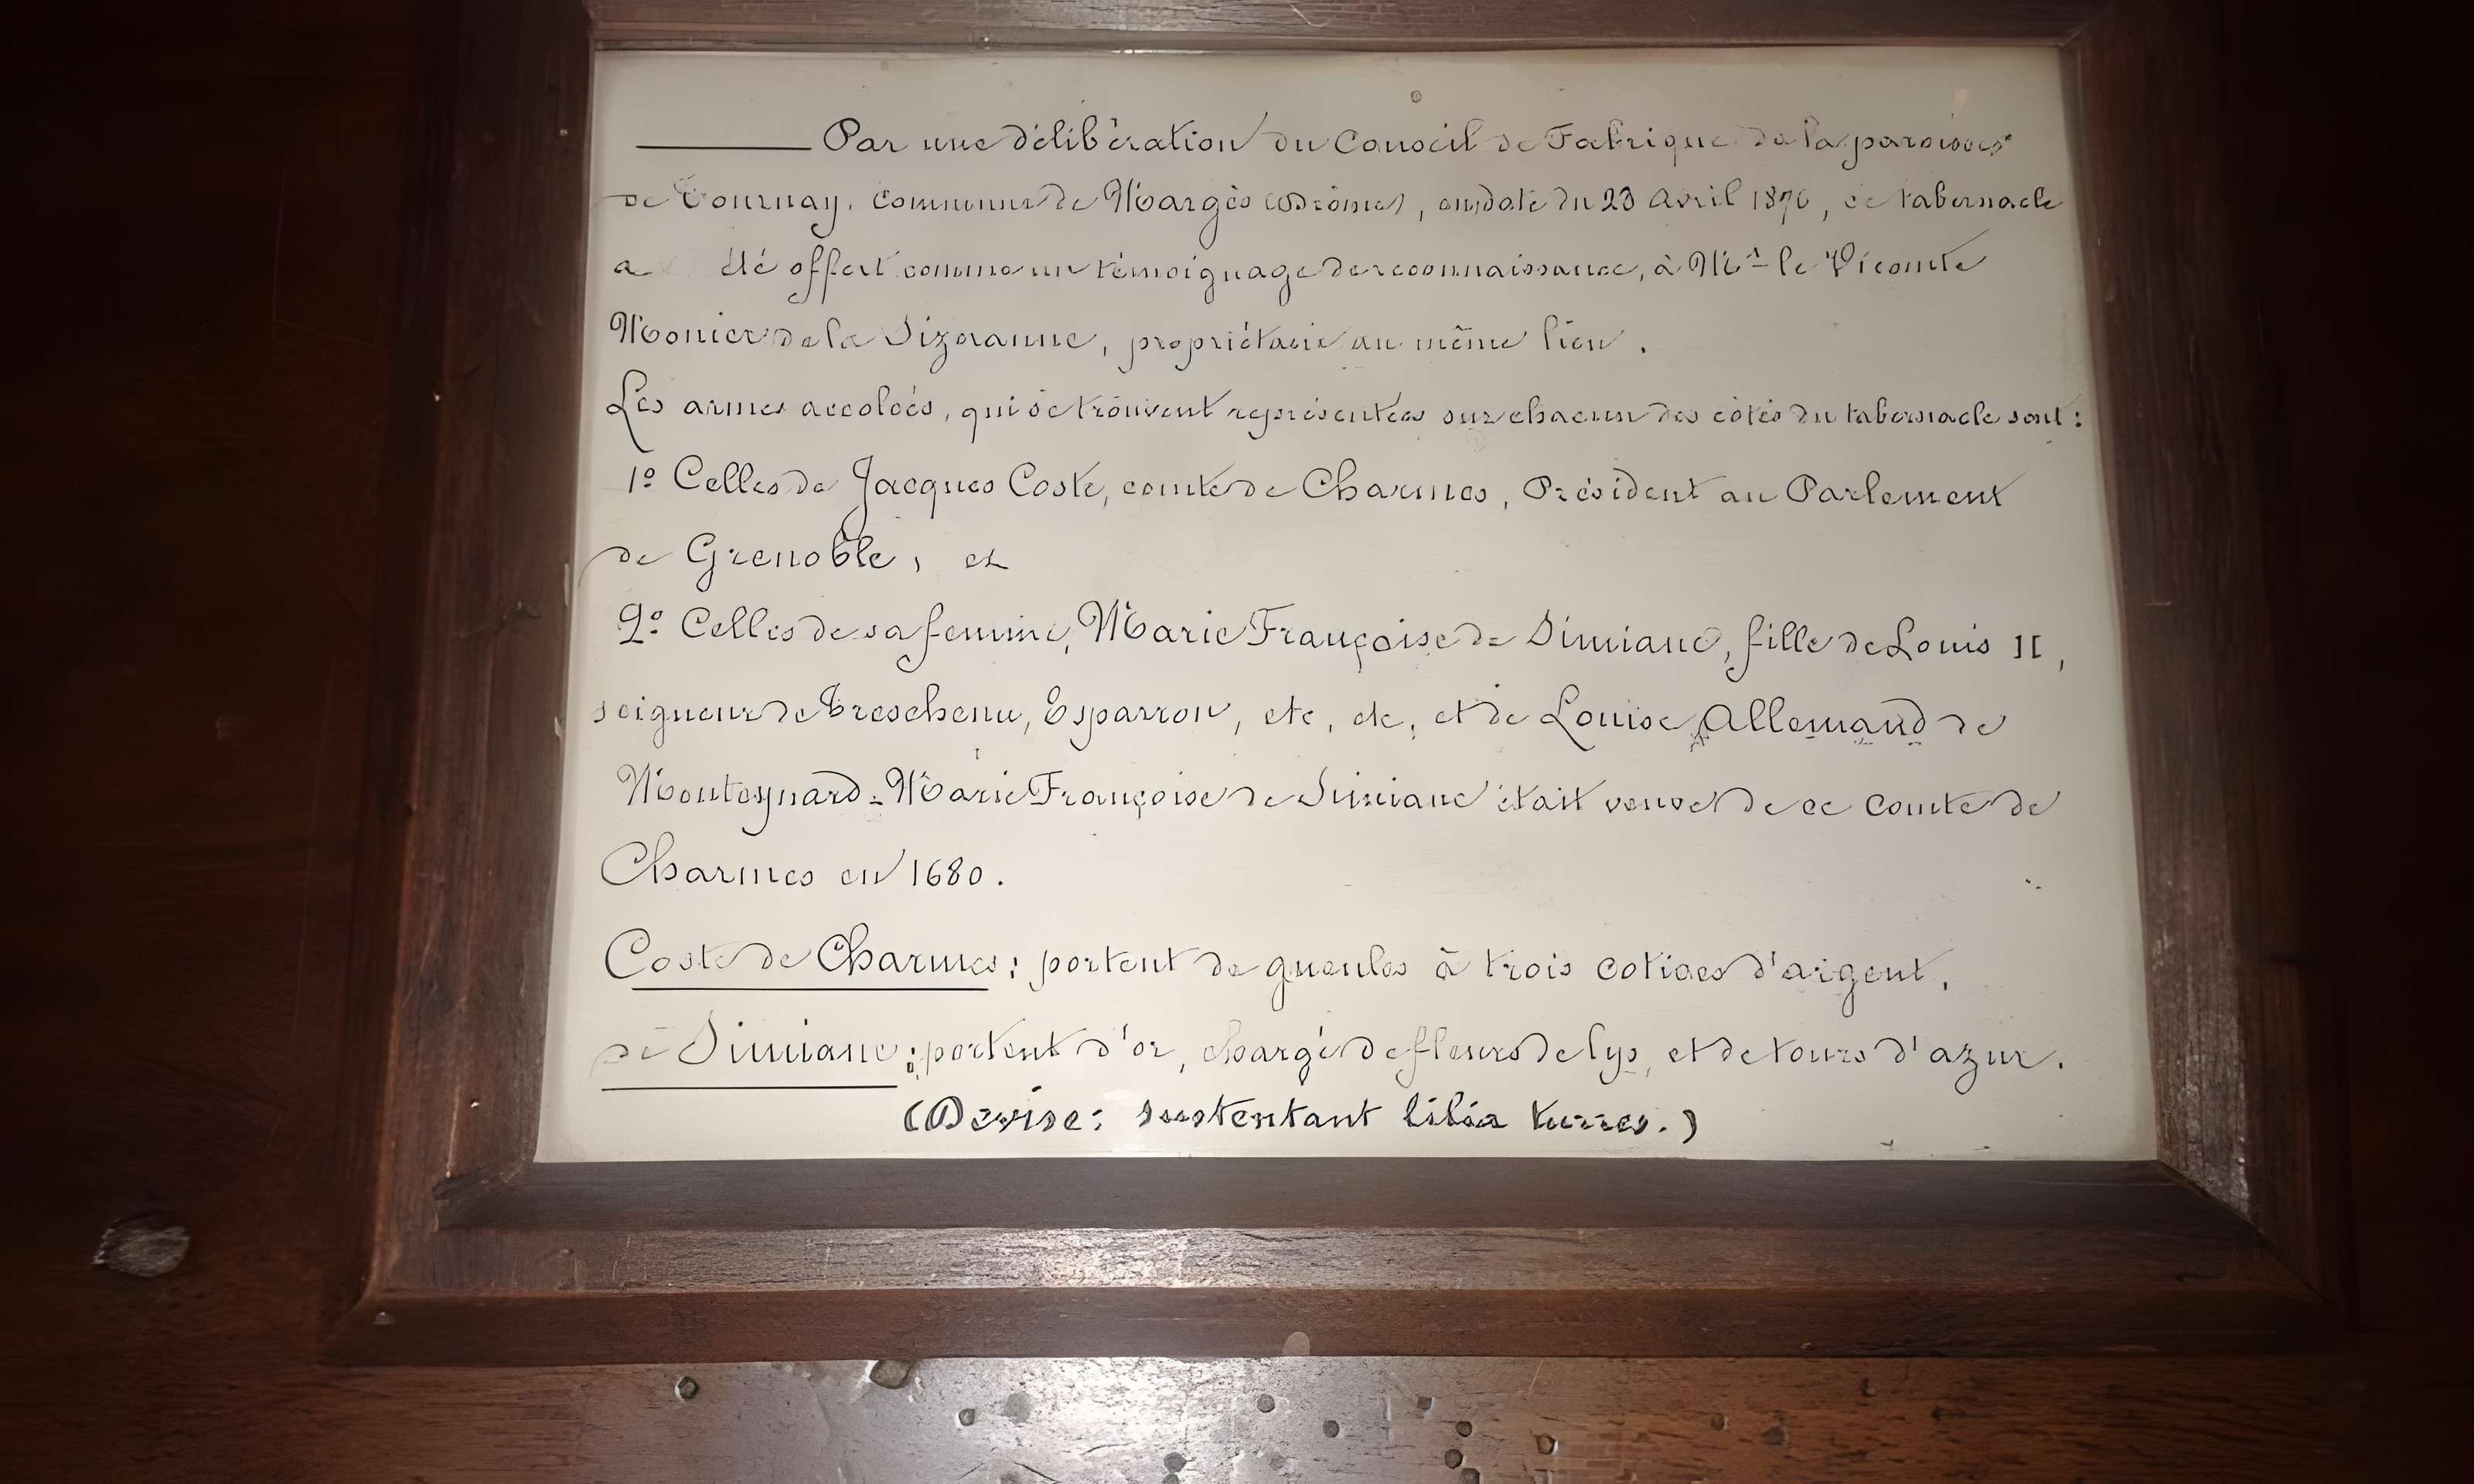 Par une délibération du Conseil de Fabrique de la paroisse
de Tournay, commune de Margès (Drôme), en date du 23 Avril 1876, ce tabernacle
a été offert comme un témoignage de reconnaissance, à Mr le Vicomte
Monier de la Sizeranne, propriétaire au même lieu.
Les armes accolées, qui se trouvent représentées sur chacun des côtés du tabernacle sont :
1º Celles de Jacques Coste, comte de Charmes, Président au Parlement
de Grenoble, et
2º Celles de sa femme, Marie Françoise de Simiane, fille de Louis II,
seigneur de Treschenu, Esparron, etc, etc, et de Louise Allemand de
Monteynard - Marie Françoise de Simiane était veuve de ce comte de
Charmes en 1680.
Coste de Charmes : portent de gueules à trois cotices d'argent,
de Simiane : portent d'or, chargé de fleurs de lys, et de tours d'azur.
(Devise : sustentant lilia turres.)